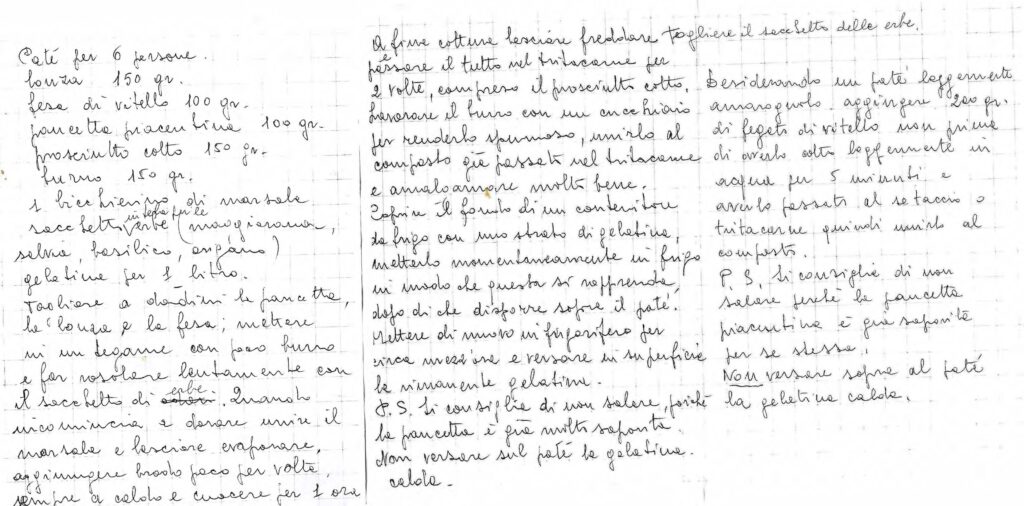 Paté per 6 persone.
lonza 150 gr.
fesa di vitello 100 gr.
pancetta piacentina 100 gr.
prosciutto cotto 150 gr.
burro 150 gr.
1 bicchierino di marsala
sacchetto erbe (maggiorana,
salvia, basilico, origano)
gelatina per 1 litro.
Tagliare a dadini la pancetta,
la lonza e la fesa; mettere
in un tegame con poco burro
e far rosolare lentamente con
il sacchetto di erbe. Quando
incomincia a dorare unire il
marsala e lasciare evaporare,
aggiungere brodo poco per volta
sempre a caldo e cuocere per 1 ora
A fine cottura lasciare freddare togliere il sacchetto delle erbe.
passare il tutto nel tritacarne per
2 volte, compreso il prosciutto cotto.
Lavorare il burro con un cucchiaio
per renderlo spumoso, unirlo al
composto già passato nel tritacarne
e amalgamare molto bene.
Coprire il fondo di un contenitore
da frigo con uno strato di gelatina,
metterlo momentaneamente in frigo
in modo che questa si rapprenda,
dopo di che disporre sopra il paté.
Mettere di nuovo in frigorifero per
circa mezz'ora e versare in superficie
la rimanente gelatina.
P.S. Si consiglia di non salare, poiché
la pancetta è già molto saporita.
Non versare sul paté la gelatina
calda.
Desiderando un paté leggermente
amarognolo aggiungere 200 gr.
di fegato di vitello non prima
di averlo cotto leggermente in
acqua per 5 minuti e
averlo passato al setaccio o
tritacarne quindi unirlo al
composto.
P.S. Si consiglia di non
salare perché la pancetta
piacentina è già saporita
per se stessa.
Non versare sopra al paté
la gelatina calda.